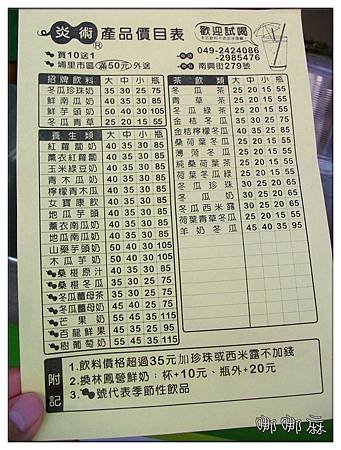 炎術®產品價目表
歡迎試喝
買10送1
埔里市區滿50元外送
049-2424086
-2985476
南興街279號
招牌飲料 大 中 小 瓶
冬瓜珍珠奶 35 30 25 75
鮮南瓜奶 40 35 30 85
鮮芋頭奶 50 40 30 105
冬瓜青草 25 20 15 55
養生類 大 中 小 瓶
紅蘿蔔奶 40 35 30 85
薏衣紅蘿蔔 40 35 30 85
玉米綠豆奶 40 35 30 85
青木瓜奶 40 35 30 85
檸檬青木瓜 40 35 30 85
女寶康飲 40 35 30 85
地瓜芋頭 40 35 30 85
薏衣南瓜奶 40 35 30 85
地瓜南瓜奶 40 35 30 85
山藥芋頭奶 50 40 30 105
木瓜芋奶 50 40 30 105
桑椹原汁 40 35 30 85
桑椹冬瓜 35 30 25 75
冬瓜薑母茶 35 30 25 75
冬瓜薑母奶 40 35 30 85
芒果奶 55 45 35 115
百龍鮮果 55 45 35 115
樹葡萄奶 55 45 35 115
茶飲類 大 中 小 瓶
冬瓜茶 25 20 15 55
青草茶 25 20 15 55
冬瓜綠茶 25 20 15 55
金桔冬瓜 35 30 25 75
金桔檸檬冬瓜 40 35 30 85
桑葉冬瓜 25 20 15 55
薄荷冬瓜 25 20 15 55
純桑荷葉茶 25 20 15 55
荷葉冬瓜綠 25 20 15 55
冬瓜珍珠 30 25 20 65
冬瓜奶 30 25 20 65
冬瓜西米露 30 25 20 65
荷葉青草冬瓜 25 20 15 55
羊奶冬瓜 45 40 35 95
附記
1.飲料價格超過35元加珍珠或西米露不加錢
2.換林鳳營鮮奶：杯+10元、瓶外+20元
3. 號代表季節性飲品
娜娜麻